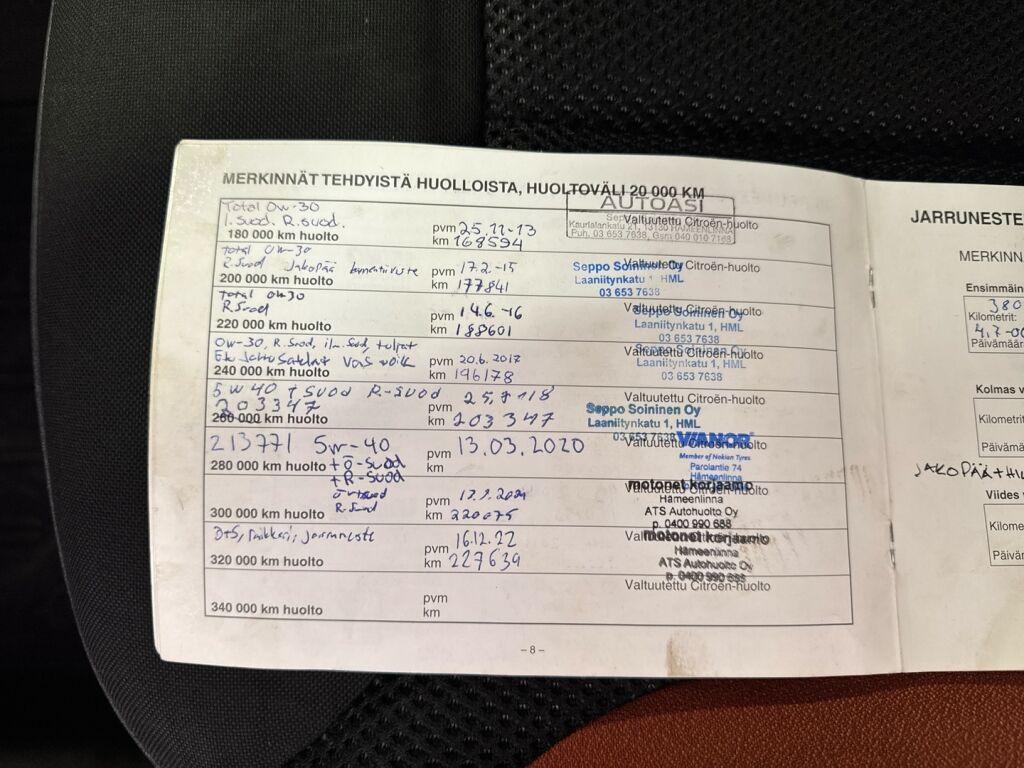 MERKINNÄT TEHDYISTÄ HUOLLOISTA, HUOLTOVÄLI 20 000 KM
Total 0w-30
I. Suod. R. Suod.
180 000 km huolto
pvm 25.11-13
km 168594
AUTOASI
Valtuutettu Citroën-huolto
Kaurialankatu 21, 13130 HÄMEENLINNA
Puh. 03 653 7638, Gsm 040 010 7168
total 0w-30
R. Suod Jakopää
200 000 km huolto
pvm 17.2.-15
km 177841
Valtuutettu Citroën-huolto
Seppo Soininen Oy
Laaniitynkatu 1 HML
03 653 7638
total 0w30
R Suod
220 000 km huolto
pvm 14.6.-16
km 188601
Valtuutettu Citroën-huolto
Seppo Soininen Oy
Laaniitynkatu 1, HML
03 653 7638
0w-30, R. Suod, ilm. Suod, tulpat
240 000 km huolto
pvm 20.6.2017
km 196178
Valtuutettu Citroën-huolto
Seppo Soininen Oy
Laaniitynkatu 1, HML
03 653 7638
5W40 + Suod R-Suod
203347
260 000 km huolto
pvm
km 203 347
Valtuutettu Citroën-huolto
Seppo Soininen Oy
Laaniitynkatu 1, HML
03 653 7638
213771 5w-40
280 000 km huolto + ö-suod
+ R-suod
pvm 13.03.2020
km
Valtuutettu Citroën-huolto
VIANOR
Member of Nokian Tyres
Parolantie 74
Hämeenlinna
R. Suod
300 000 km huolto
pvm
km 220075
Valtuutettu Citroën-huolto
motonet korjaamo
Hämeenlinna
ATS Autohuolto Oy
p. 0400 990 688
jarruneste
320 000 km huolto
pvm 16.12.22
km 227639
Valtuutettu Citroën-huolto
motonet korjaamo
Hämeenlinna
ATS Autohuolto Oy
340 000 km huolto
pvm
km
Valtuutettu Citroën-huolto
– 8 –
JARRUNESTE
MERKINN
Ensimmäin
380
Kilometrit:
Päivämäär
Kolmas v
Kilometri
Päivämä
JAKOPÄÄ+HI
Viides
Kilome
Päivär